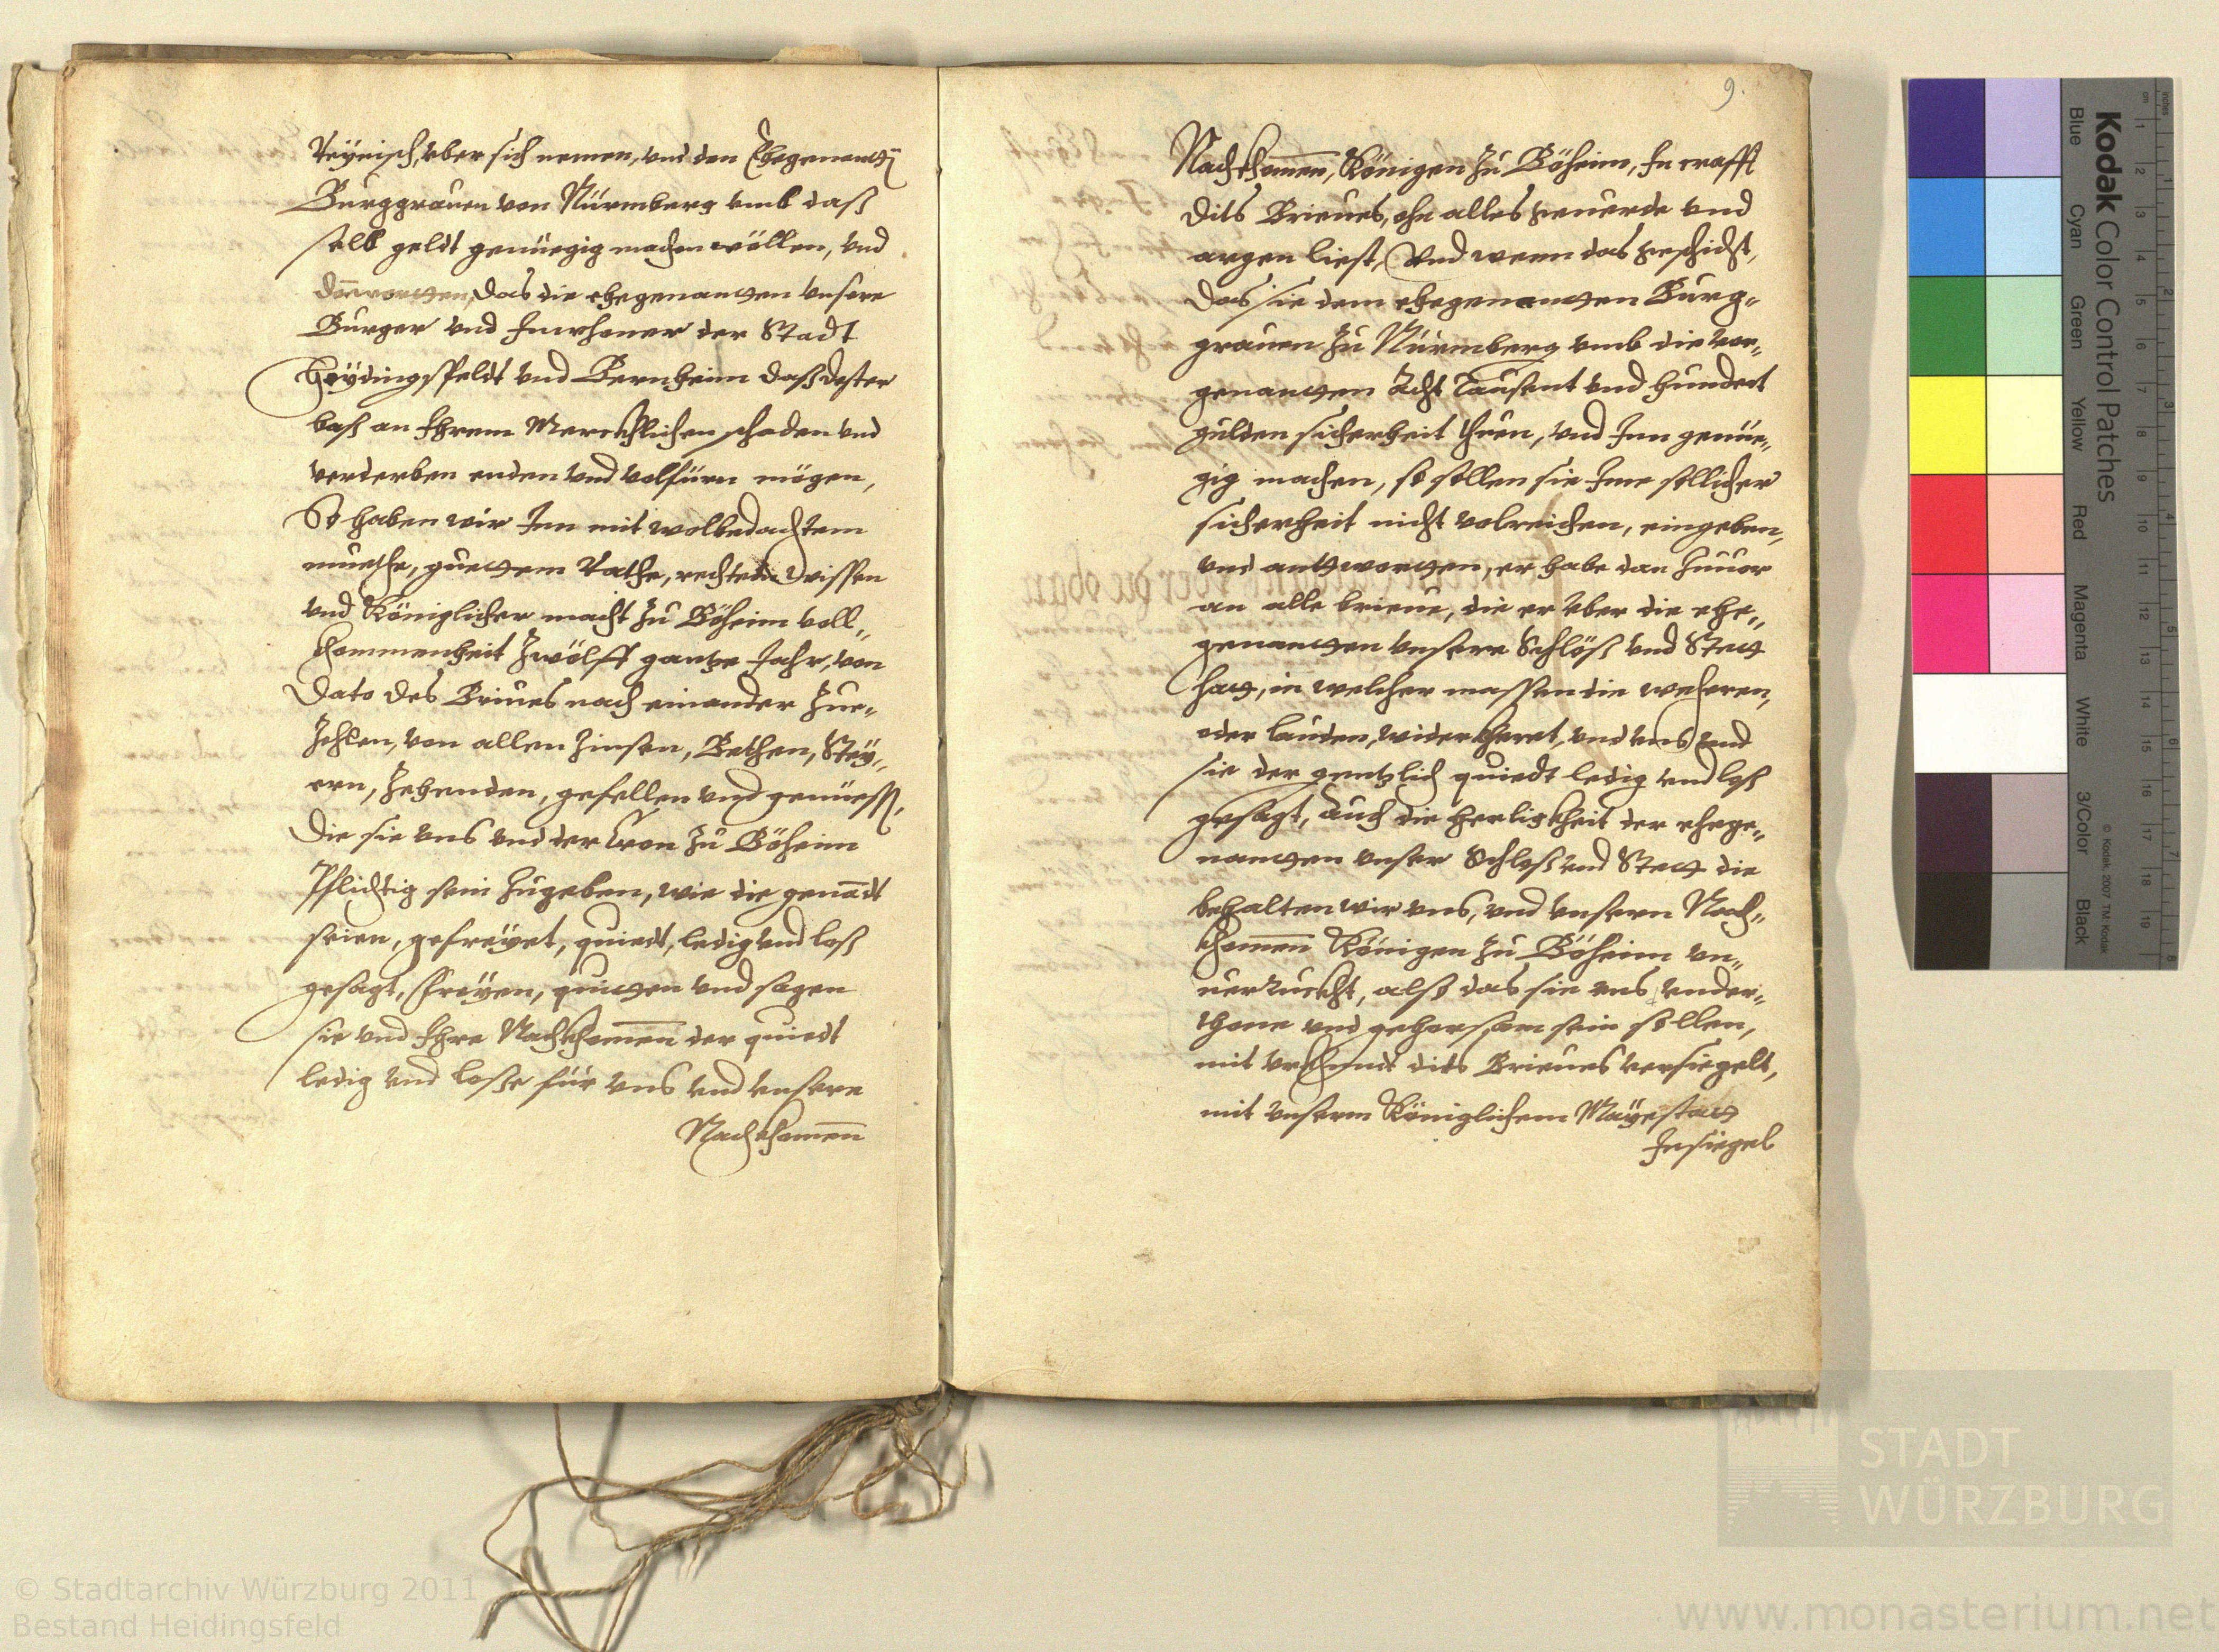 Reÿnisch, vber sich nemen, vnd den Ehegenantē
Burggrauen von Nürmberg vmb daß
selb geldt genüegig machen wöllen, vnd
das die ehegenanten vnsere
Burger vnd Inwhoner der Stadt
Heÿdingsfeldt vnd Bernheim daß dester
baß an Ihrem Merckhlichen schaden vnd
verderben enden vnd volfürn mögen,
So haben wir Inn mit wolbedachtem
muethe, guettem Rathe, rechtem wissen
vnd Königlicher macht zu Böheim voll„
khommenheit zwölff gantze Jahr, von
Dato des Brieues nach einander zue„
zehlen, von allen Zinsen, Bethen, Steÿ„
ern, Zehenden, gefellen vnd genüess,
Die sie vns vnd der Cron zu Böheim
Pflichtig sein zugeben, wie die genādt
seien, gefreÿet, quiedt, ledig vnd loß
gesagt, Freÿen, quitten vnd sagen
sie vnd Ihre Nachkhomēn der quiedt
ledig vnd loße für vns vnd vnsere
Nachkhomēn
9.
Nachkhomēn, Königen zu Böheim, In crafft
dits Brieues, ohn alles geuerde vnd
argen liest, Vnd wenn das geschicht,
Das sie dem ehegenanten Burg„
grauen zu Nürmberg vmb die vor„
genanten Acht Tausent vnd hundert
gulden sicherheit thuen, vnd Inn genüe„
gig machen, so sollen sie Ime sollicher
sicherheit nicht volreichen, eingeben,
vnd anttwortten, er habe dan zuuor
an alle brieue, die er vber die ehe„
genanten vnsere Schlöß vnd Stett
hatt, in welcher massen die weheren,
oder lauden, widerkheret, vnd vns vnd
sie der gentzlich quiedt ledig vnd loß
gesagt, Auch die Herligkheit der ehege„
nanten vnser Schloß vnd Stett die
behalten wir vns, vnd vnsern Nach„
khomēn Königen zu Böheim vn„
uerruckht, alß das sie vns vnder„
thone vnd gehorsam sein sollen,
mit vrkhundt dits Brieues versiegelt,
mit vnserm Königlichem Mayestatt
Insiegel
Kodak Color Control Patches
Blue Cyan Green Yellow Red Magenta White 3/Color Black
© Kodak, 2007 TM: Kodak
STADT
WÜRZBURG
© Stadtarchiv Würzburg 2011
Bestand Heidingsfeld
www.monasterium.net